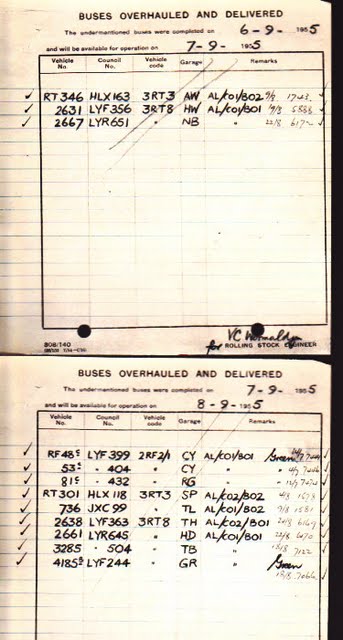 BUSES OVERHAULED AND DELIVERED
The undermentioned buses were completed on 6-9- 1955
and will be available for operation on 7-9- 1955
Vehicle No. Council No. Vehicle code Garage Remarks
✓ RT 346 HLX 163 3RT3 AW AL/K01/B02 ✓
✓ 2631 LYF 356 3RT8 HW AL/K01/B01 ✓
✓ 2667 LYR 651 " NB " 22/8 ✓
808/140
V.C.
for ROLLING STOCK ENGINEER
BUSES OVERHAULED AND DELIVERED
The undermentioned buses were completed on 7-9- 1955
and will be available for operation on 8-9- 1955
Vehicle No. Council No. Vehicle code Garage Remarks
✓ RF 48c LYF 399 2RF2/1 CY AL/K01/B01 Green
✓ 53c " 404 " CY "
✓ 81c " 432 " RG "
✓ RT 301 HLX 118 3RT3 SP AL/K02/B02 ✓
✓ 736 JXC 99 " TL AL/K01/B02 ✓
✓ 2638 LYF 363 3RT8 TH AL/K02/B01 ✓
✓ 2661 LYR 645 " HD AL/K01/B01 22/8 ✓
✓ 3285 " 504 " TB " 7122 ✓
✓ 4185 LYF 244 " GR " Green
18/8